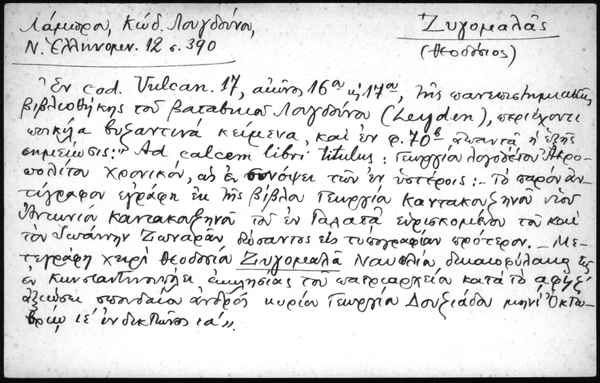 Λάμπρου, Κώδ. Λουγδούνου,
Ν. Ἑλληνομν. 12 σ. 390
Ζυγομαλᾶς
(Θεοδόσιος)
Ἐν cod. Vulcan. 17, αἰῶνος 16ου ἢ 17ου, τῆς πανεπιστημιακῆς
βιβλιοθήκης τοῦ βαταβικοῦ Λουγδούνου (Leyden), περιέχοντι
ποικίλα βυζαντινὰ κείμενα, καὶ ἐν φ. 70β ἀπαντᾷ ἡ ἑξῆς
σημείωσις: " Ad calcem libri titulus: Γεωργίου λογοθέτου Ἀκρο-
πολίτου χρονικόν, ὡς ἐν συνόψει τῶν ἐν ὑστέροις :- Τὸ παρὸν ἀν-
τίγραφον ἐγράφη ἐκ τῆς βίβλου Γεωργίου Καντακουζηνοῦ υἱοῦ
Ἀντωνίου Καντακουζηνοῦ τοῦ ἐν Γαλατᾷ εὑρισκομένου τοῦ καὶ
τὸν Ἰωάννην Ζωναρᾶν δώσαντος εἰς τυπογραφίαν πρότερον. — Με-
τεγράφη χειρὶ Θεοδοσίου Ζυγομαλᾶ Ναυπλίου δικαιοφύλακος τῆς
ἐν Κωνσταντινουπόλει ἐκκλησίας τοῦ πατριαρχείου κατὰ τὸ αφξζ'
ἀξιώσει σπουδαίου ἀνδρὸς κυρίου Γεωργίου Δουξιάδου μηνὶ Ὀκτω-
βρίῳ ιε' ἰνδικτιῶνος ια'».